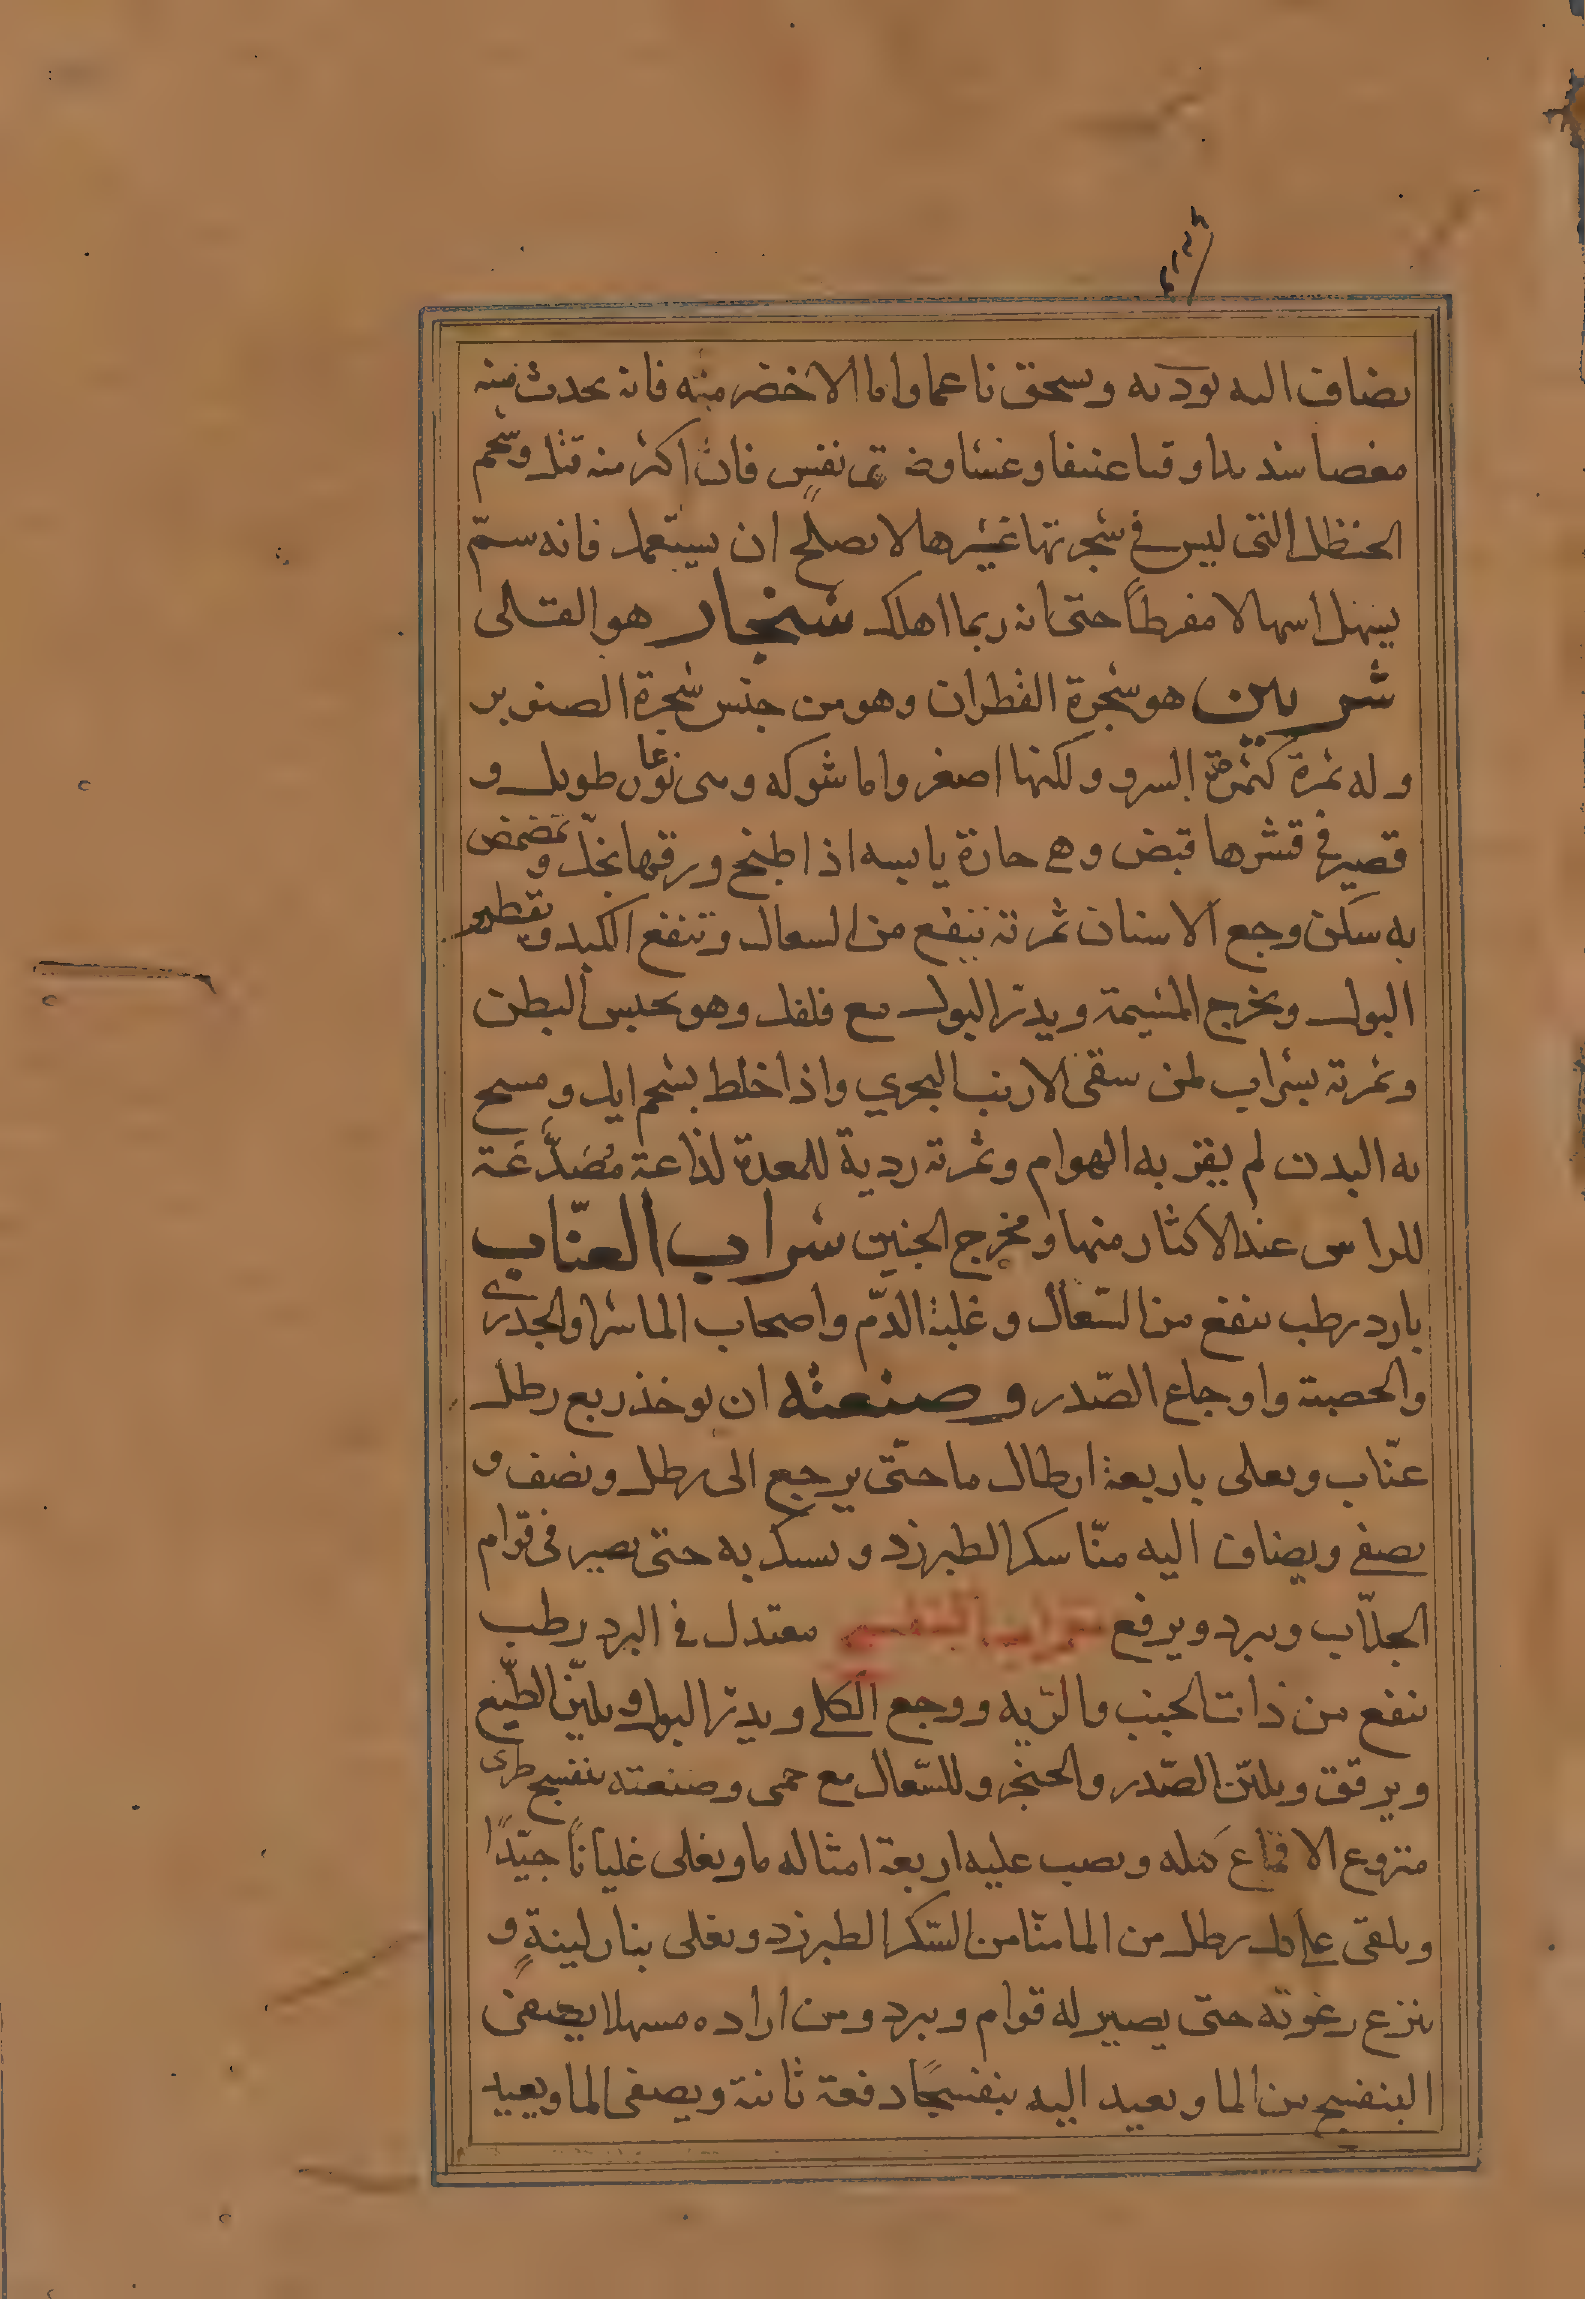 يضاف اليه بودنه ويسحق ناعما واما الاخضر منه فانه يحدث منه
مغصا شديدا وقيا عنيفا وغشيا وضيق نفس فان اكثر منه قتل وشحم
الحنظل التى ليس فى شجرتها غيرها لا يصلح ان يستعمل فانه سمّ
يسهل اسهالا مفرطاً حتى انه ربما اهلك شنجار هو القالى
شربين هو شجرة القطران وهو من جنس شجرة الصنوبر
وله ثمرة كثمرة السرو ولكنها اصغر واما شوكه وهى نوعان طويل و
قصير فى قشرها قبض وهى حارة يابسه اذا طبخ ورقها بخلّ وتمضمض
به سكن وجع الاسنان ثمرته ينفع من السعال وتنفع الكبد وتقطير
البول ويخرج المشيمة ويدرّ البول مع فلفل وهو يحبس البطن
وثمرته بشراب لمن سقى الارنب البحري واذا خلط بشحم ايل ومسح
به البدن لم يقربه الهوام وثمرته ردية للمعدة لذاعة مُصَدّعَة
للراس عند الاكثار منها ومخرج الجنين شراب العنّاب
بارد رطب ينفع من السّعال وغلبة الدّم واصحاب الماشرا والجدرى
والحصبة واوجاع الصّدر وصنعته ان يوخذ ربع رطل
عنّاب ويغلى باربعة ارطال ما حتّى يرجع الى رطل ونصف و
يصفى ويضاف اليه منّا سكر الطبرزد ويسلك به حتى يصير فى قوام
الجلّاب ويبرد ويرفع شراب البنفسج معتدل فى البرد رطب
ينفع من ذات الجنب والرّيه ووجع الكلى ويدرّ البول ويليّن الطّبع
ويرقق ويليّن الصّدر والحنجر وللسّعال مع حمى وصنعته بنفسج طرى
منزوع الاقماع كيله ويصب عليه اربعة امثاله ما ويغلى غلياناً جيّدًا
ويلقى على كل رطل من الما منّا من السّكر الطبرزد ويغلى بنار لينةٍ و
ينزع رغوته حتى يصير له قوام ويبرد ومن اراده مسهلا يصفى
البنفسج من الما ويعيد اليه بنفسجًا دفعة ثانية ويصفى الما ويعيد